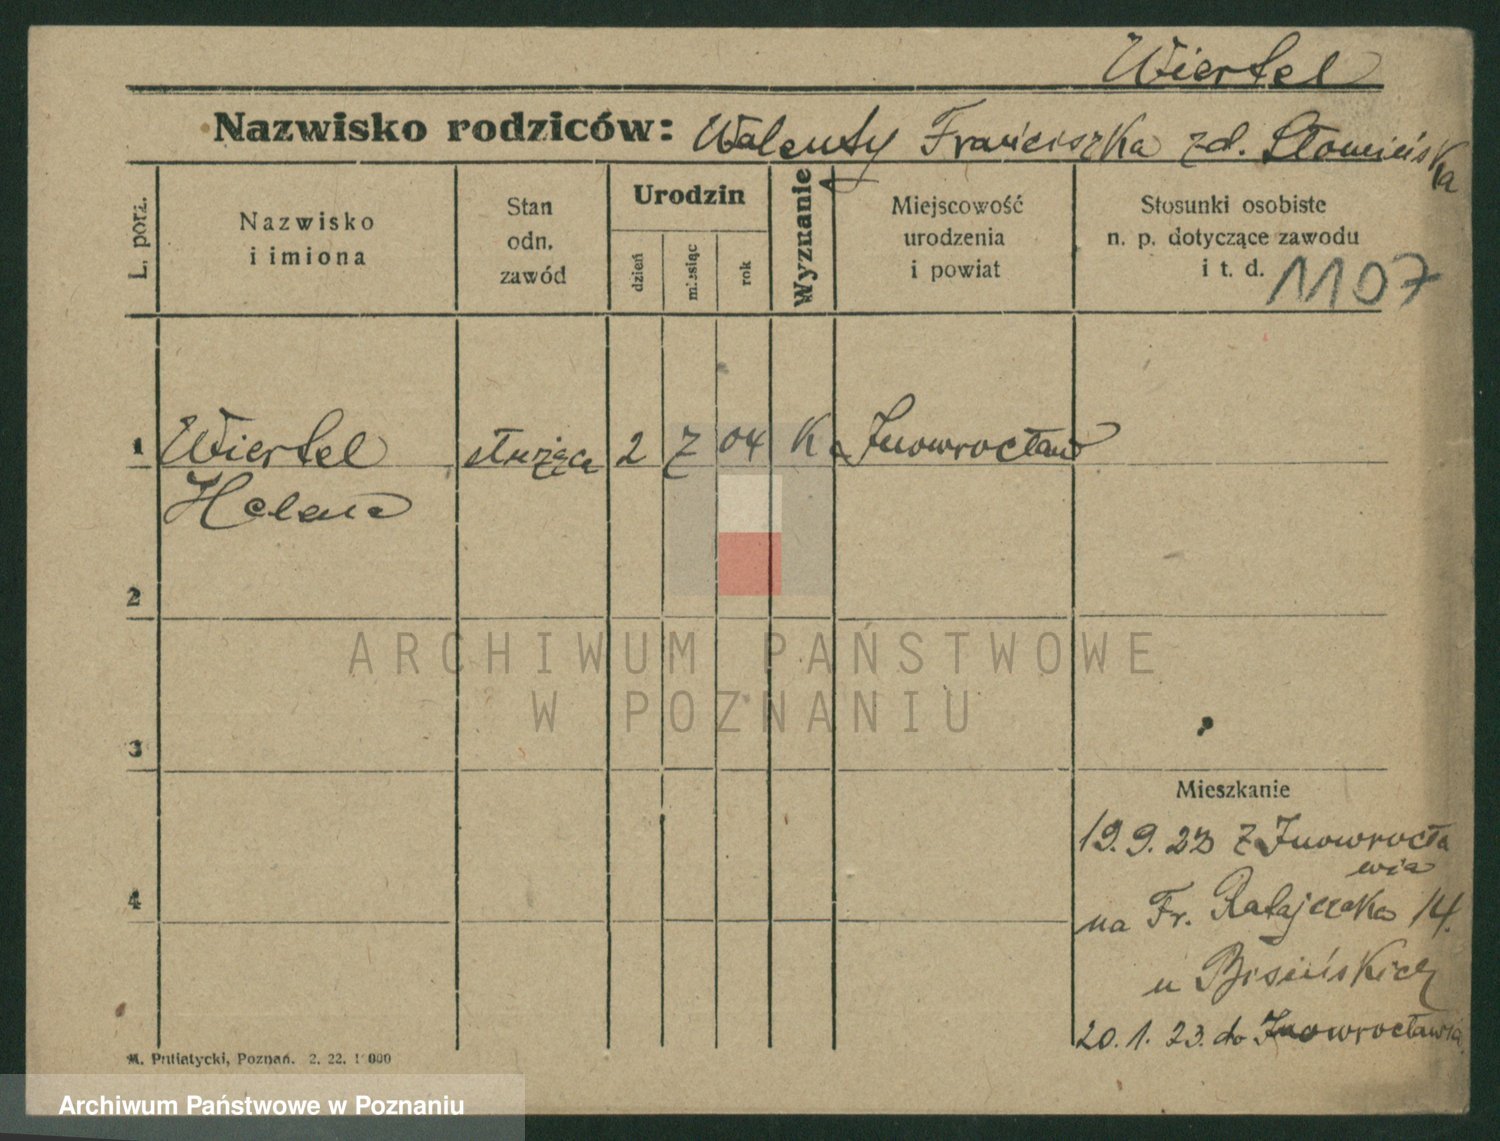 Wiertel
Nazwisko rodziców: Walenty Franciszka zd. Słomińska
L. porz.
Nazwisko
i imiona
Stan
odn.
zawód
Urodzin
dzień
miesiąc
rok
Wyznanie
Miejscowość
urodzenia
i powiat
Stosunki osobiste
n. p. dotyczące zawodu
i t. d.
1107
1 Wiertel służąca 2 7 04 K Inowrocław
Helena
2
3
4
Mieszkanie
19. 9. 22 z Inowrocła
wia
na Fr. Ratajczaka 14.
u
20. 1. 23. do Inowrocławia
M. Putiatycki, Poznań. 2. 22.
ARCHIWUM PAŃSTWOWE
W POZNANIU
Archiwum Państwowe w Poznaniu